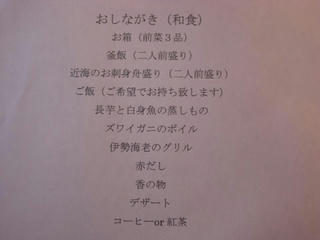 おしながき（和食）
お箱（前菜３品）
釜飯（二人前盛り）
近海のお刺身舟盛り（二人前盛り）
ご飯（ご希望でお持ち致します）
長芋と白身魚の蒸しもの
ズワイガニのボイル
伊勢海老のグリル
赤だし
香の物
デザート
コーヒーor 紅茶